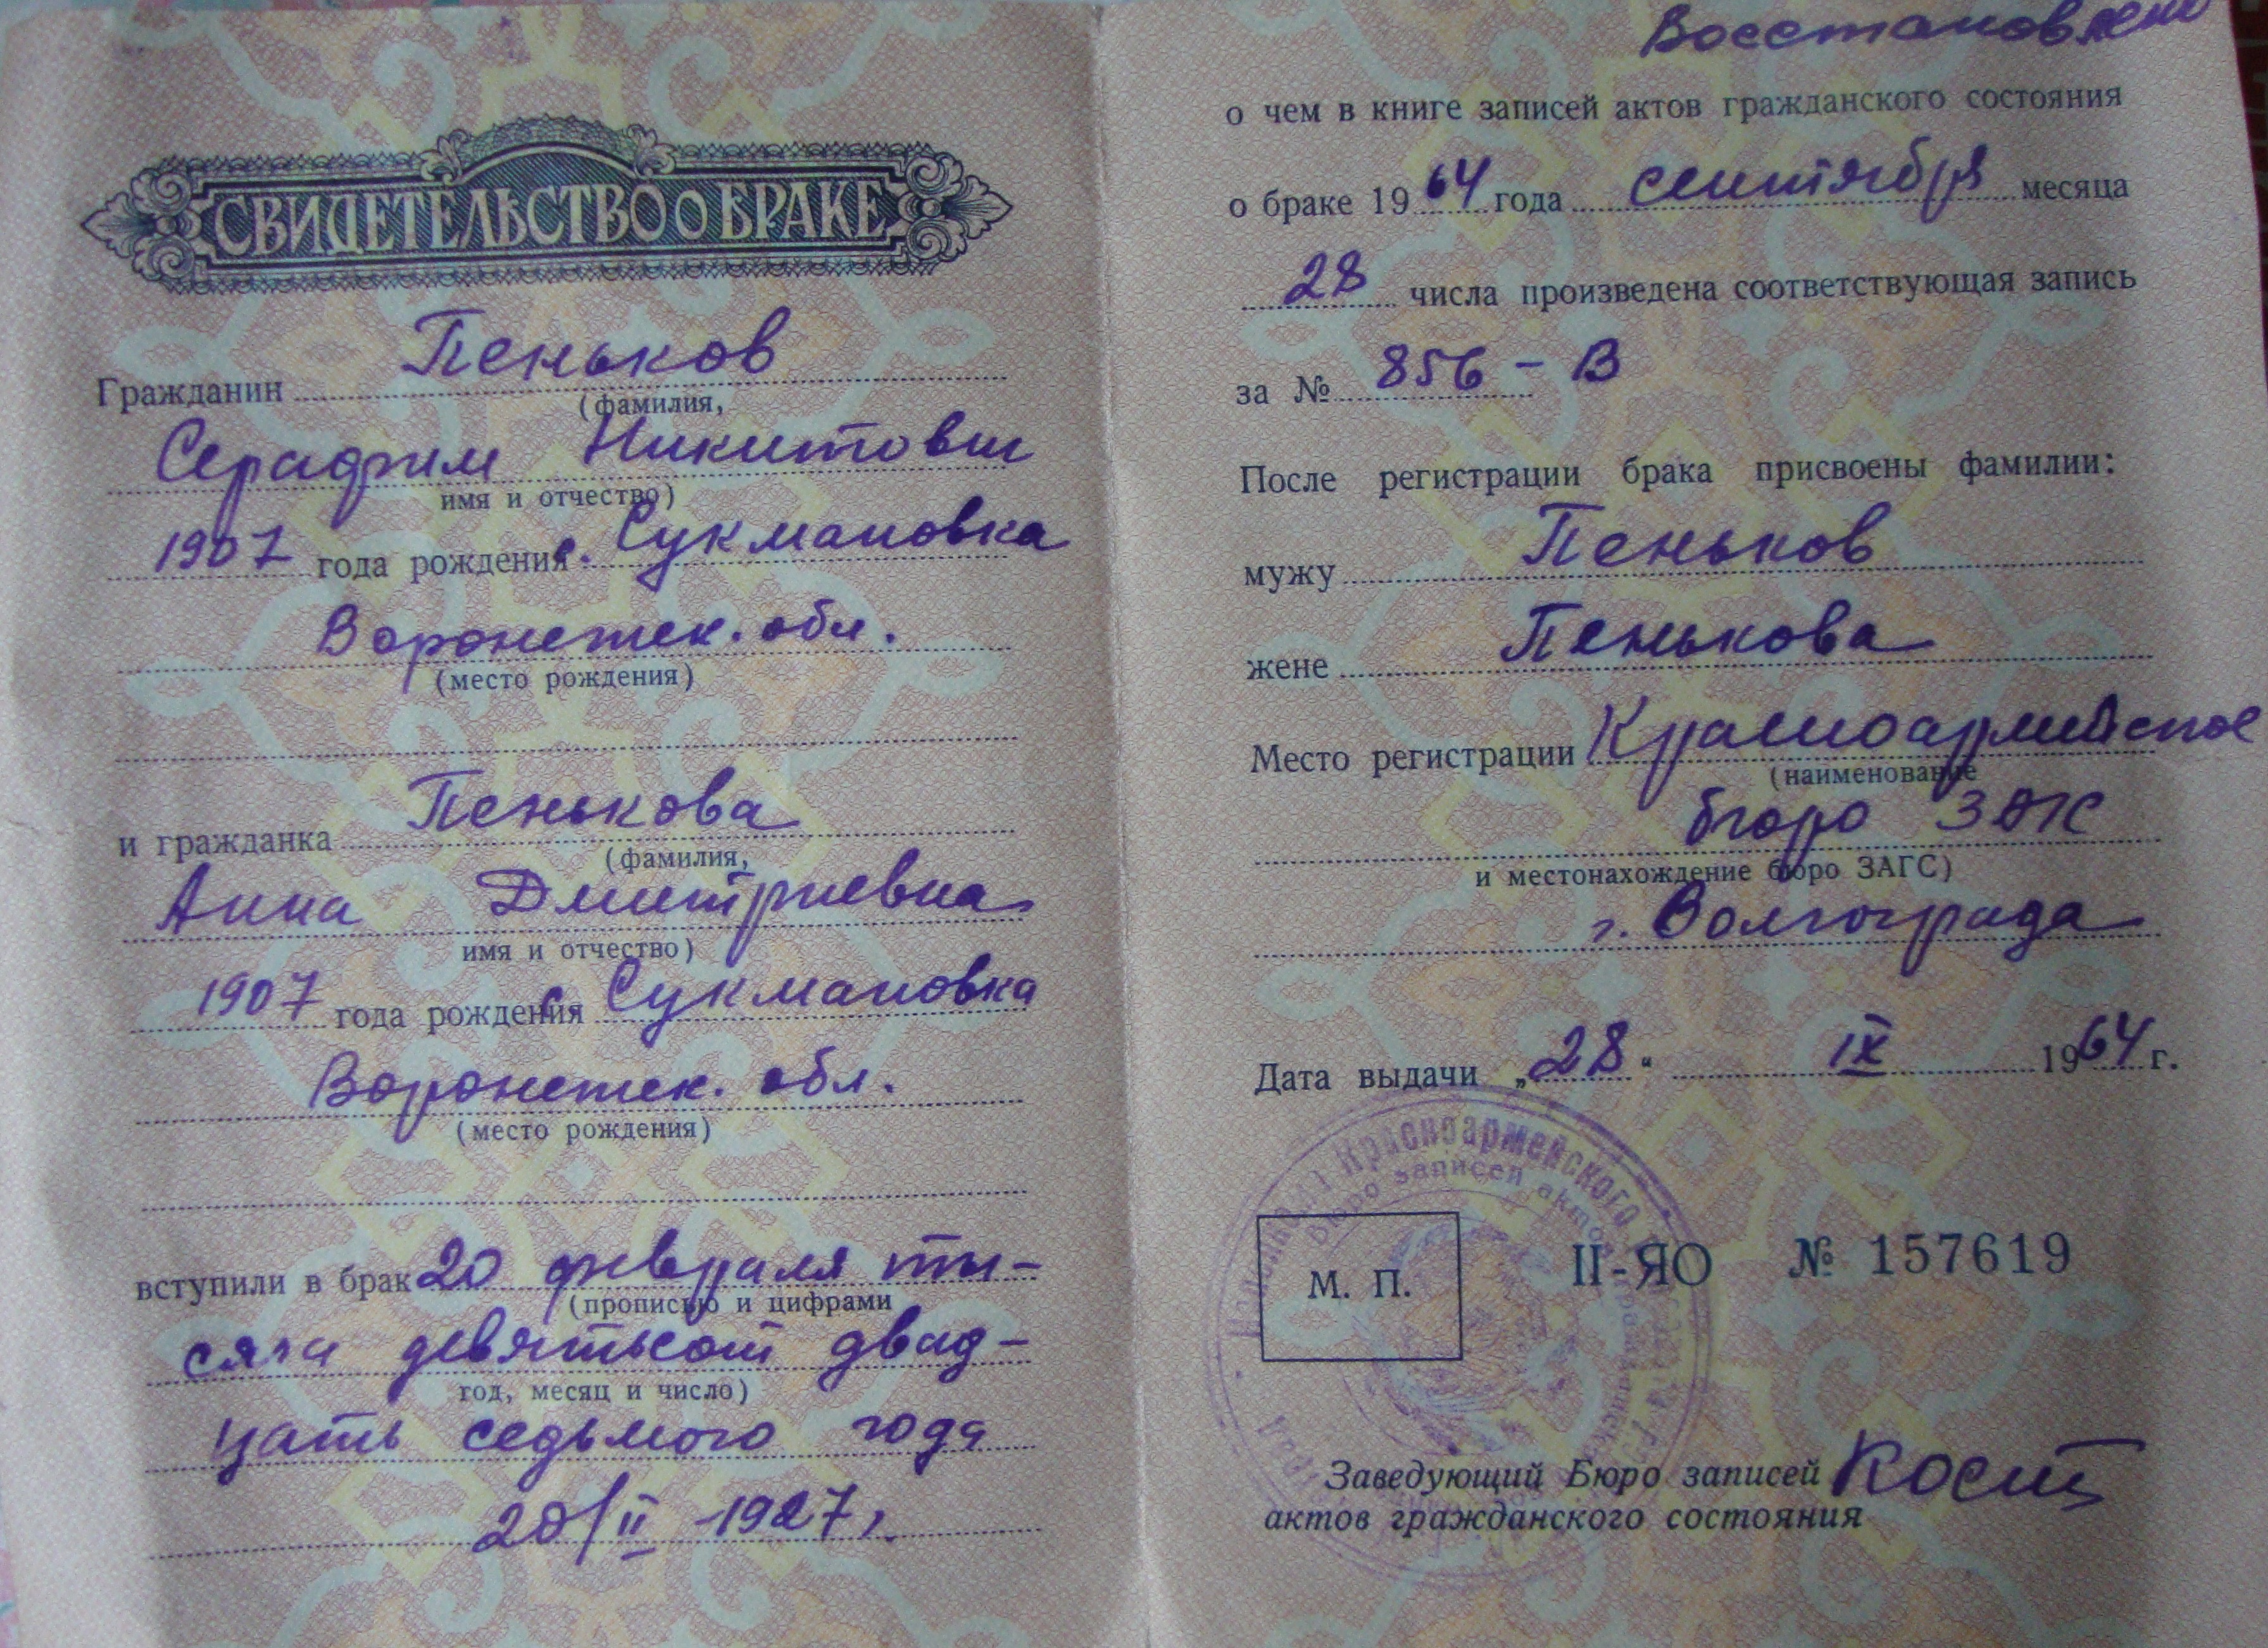 СВИДЕТЕЛЬСТВО О БРАКЕ
Гражданин Пеньков
(фамилия,
Серафим Никитович
имя и отчество)
1907 года рождения с. Сукмановка
Воронежск. обл.
(место рождения)
и гражданка Пенькова
(фамилия,
Анна Дмитриевна
имя и отчество)
1907 года рождения с. Сукмановка
Воронежск. обл.
(место рождения)
вступили в брак 20 февраля ты-
(прописью и цифрами
сяча девятьсот двад-
год, месяц и число)
цать седьмого года
20/II -1927 г.
Восстановлено
о чем в книге записей актов гражданского состояния
о браке 1964 года сентября месяца
28 числа произведена соответствующая запись
за № 856 - В
После регистрации брака присвоены фамилии:
мужу Пеньков
жене Пенькова
Место регистрации Красноармейское
(наименование
бюро ЗАГС
и местонахождение бюро ЗАГС)
г. Волгограда
Дата выдачи „28" IX 1964 г.
Красноармейского
бюро записей актов
М. П.
II-ЯО № 157619
Заведующий Бюро записей
актов гражданского состояния